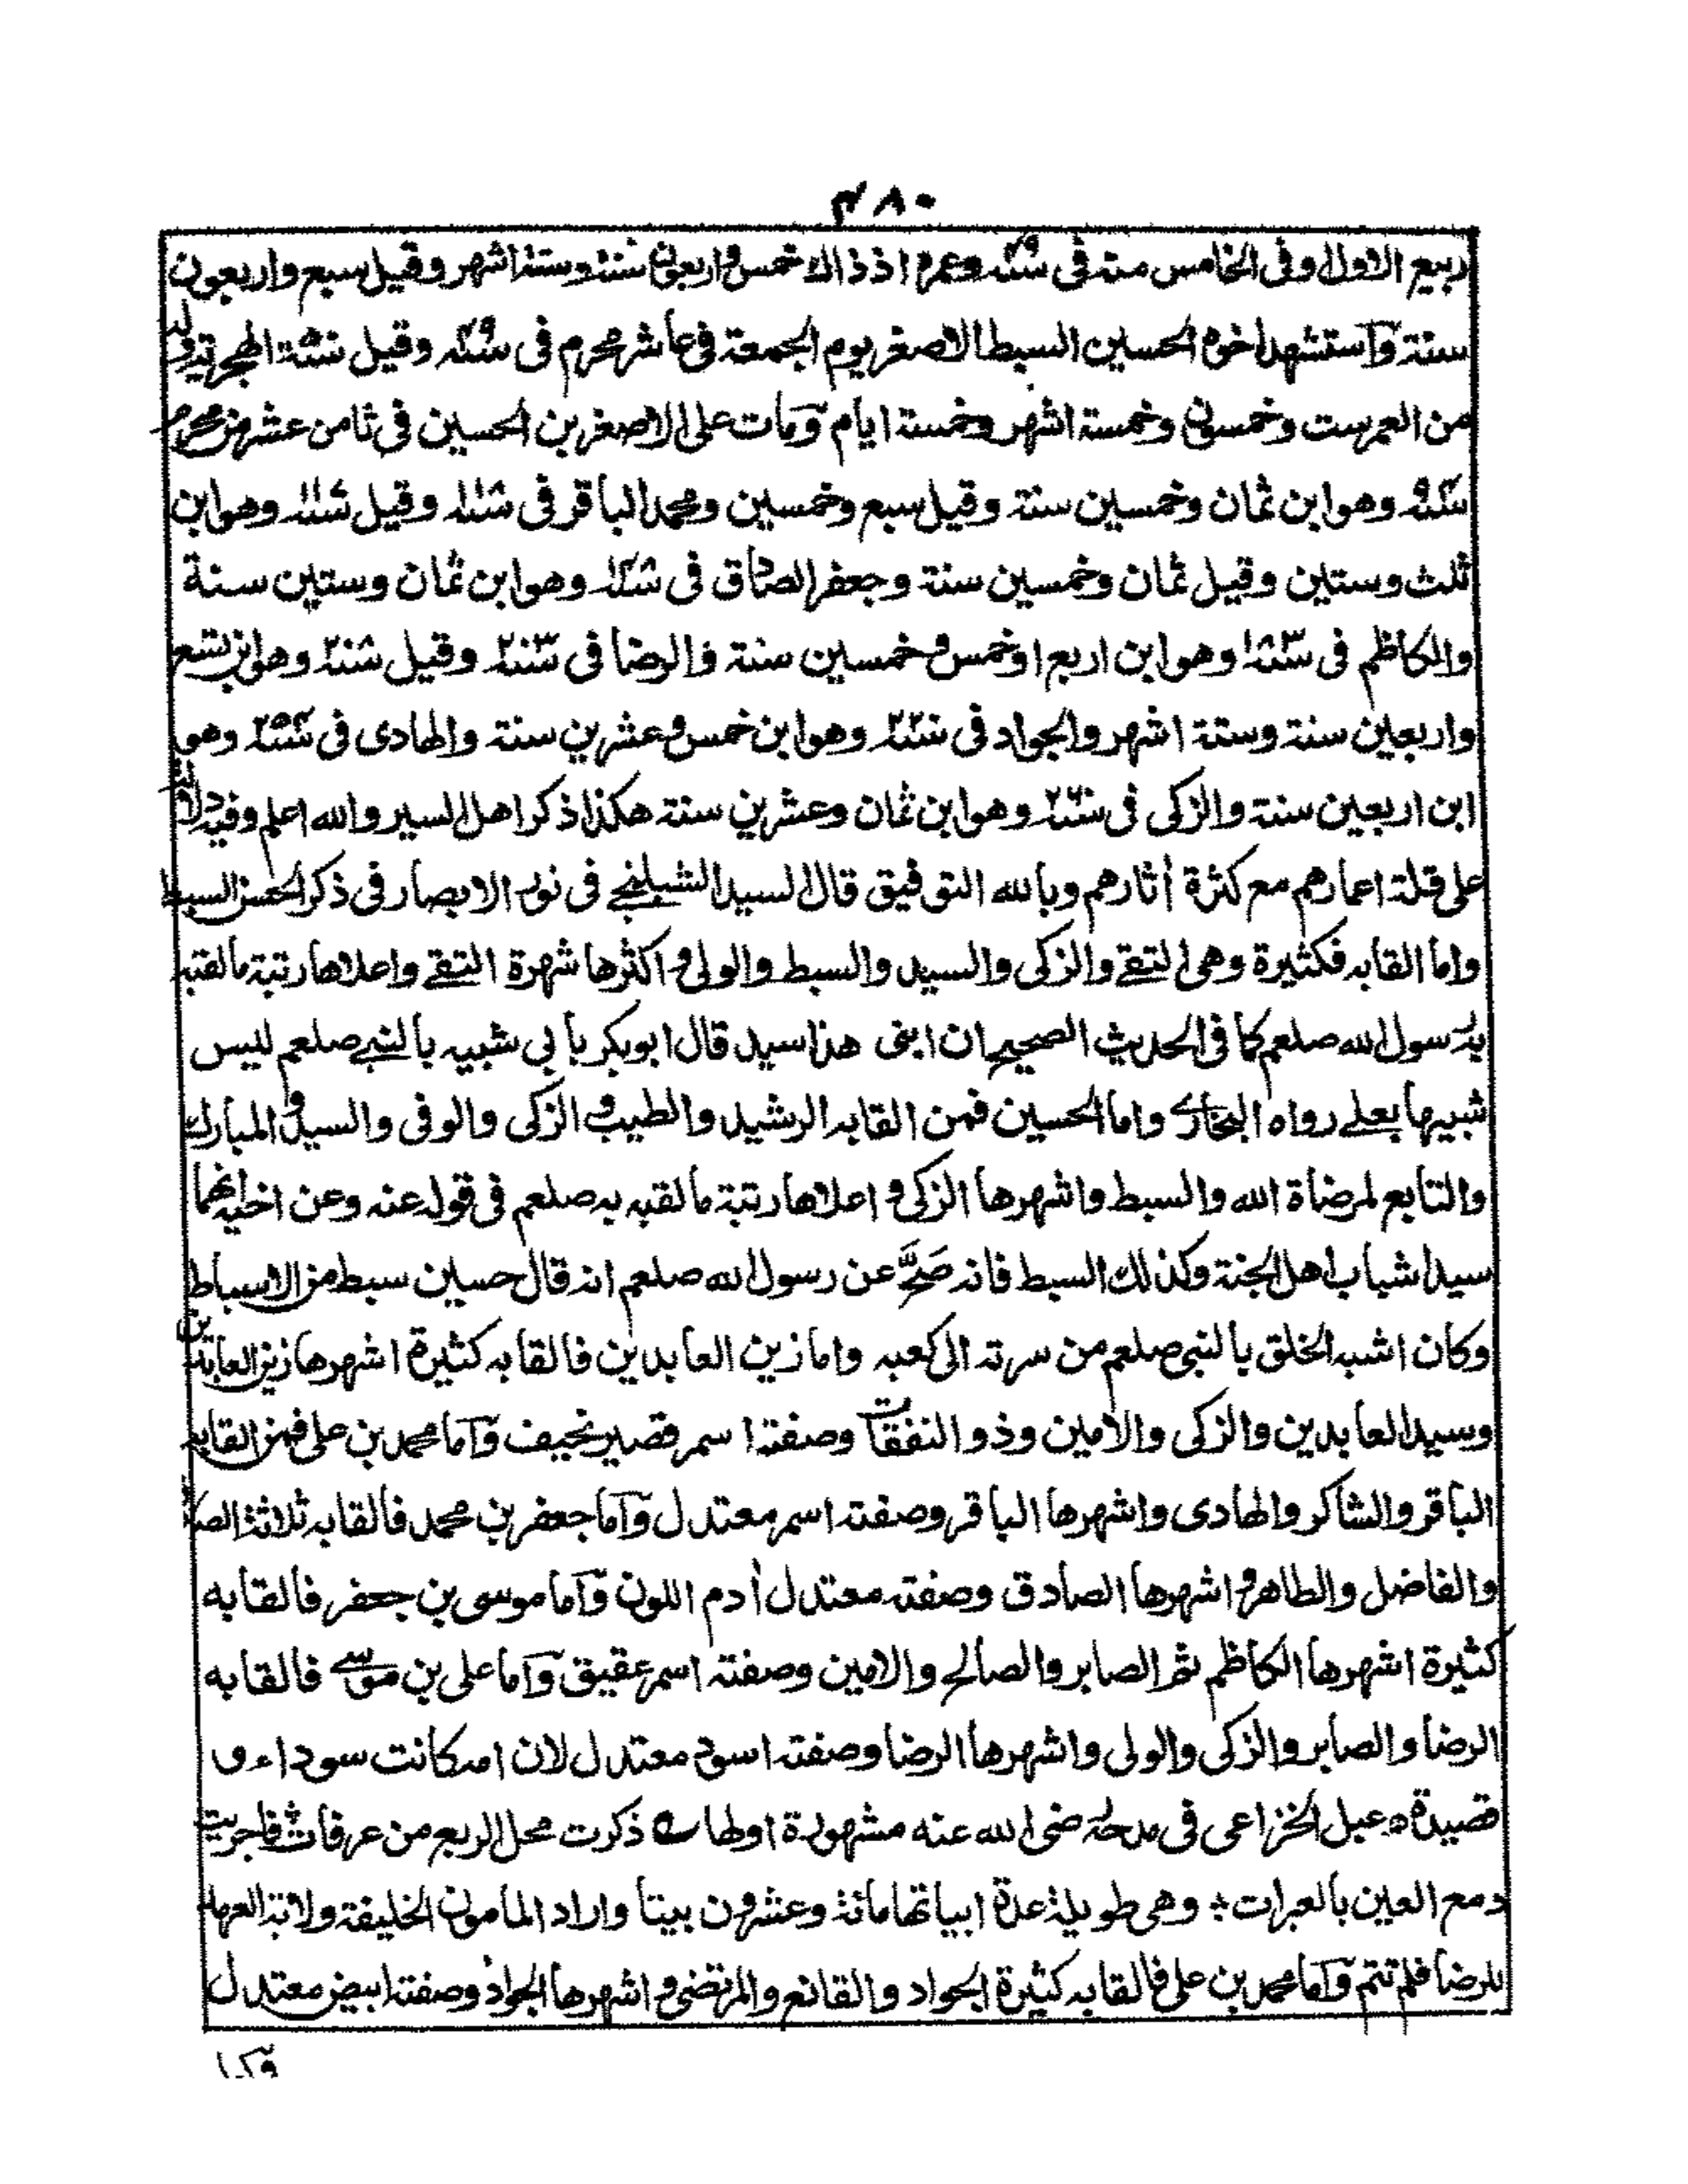 ٤٨٠
ربيع الاول وفى الخامس منه فى سنة ٤٩ وعمره اذ ذاك خمس واربعون سنة وستة اشهر وقيل سبع واربعون
سنة وآستشهد اخوه الحسين السبط الاصغر يوم الجمعة فى عاشر محرم فى وقيل سنة الهجرية وله
من العمر ست وخمسون وخمسة اشهر وخمسة ايام وٓمات على الاصغر بن الحسين فى ثامن عشر من محرم
وهو ابن ثمان وخمسين سنة وقيل سبع وخمسين ومحمد الباقر فى وقيل وهو ابن
ثلث وستين وقيل ثمان وخمسين سنة وجعفر الصادق فى وهو ابن ثمان وستين سنة
والكاظم فى سنة ١٨٣ وهو ابن اربع او خمس وخمسين سنة والرضا فى سنة ٢٠٣ وقيل وهو ابن تسع
واربعين سنة وستة اشهر والجواد فى سنة ٢٢٠ وهو ابن خمس وعشرين سنة والهادى فى سنة ٢٥٤ وهو
ابن اربعين سنة والزكى فى سنة ٢٦٠ وهو ابن ثمان وعشرين سنة هكذا ذكر اهل السير والله اعلم وفيه دلالة
على قلة اعمارهم مع كثرة أثارهم وبالله التوفيق قال السيد الشبلنجے فى نور الابصار فى ذكر الحسن السبط
واما القابه فكثيرة وهى التقے والزكى والسيد والسبط والولى واكثرها شهرة التقے واعلاها رتبة ما لقبه
به رسول الله صلعم كما فى الحديث الصحيح ان ابنى هذا سيد قال ابو بكر بأبى شبيه بالنبے صلعم ليس
شبيها بعلے رواه البخارے واما الحسين فمن القابه الرشيد والطيب والزكى والوفى والسيد والمبارك
والتابع لمرضاة الله والسبط واشهرها الزكى واعلاها رتبة ما لقبه به صلعم فى قوله عنه وعن اخيه انهما
سيدا شباب اهل الجنة وكذلك السبط فانه صَحَّ عن رسول الله صلعم انه قال حسين سبط من الاسباط
وكان اشبه الخلق بالنبى صلعم من سرته الى كعبه واما زين العابدين فالقابه كثيرة اشهرها زين العابدين
وسيد العابدين والزكى والامين وذو النفقات وصفته اسمر قصير نحيف وٓاما محمد بن على فمن القابه
الباقر والشاكر والهادى واشهرها الباقر وصفته اسمر معتدل وٓاما جعفر بن محمد فالقابه ثلاثة الصادق
والفاضل والطاهر واشهرها الصادق وصفته معتدل أدم اللون وٓاما موسى بن جعفر فالقابه
كثيرة اشهرها الكاظم ثم الصابر والصالح والامين وصفته اسمر عقيق وٓاما على بن موسے فالقابه
الرضا والصابر والزكى والولى واشهرها الرضا وصفته اسود معتدل لان امه كانت سوداء و
قصيدة دعبل الخزاعى فى مدحه رضى الله عنه مشهورة اولها ذكرت محل الربع من عرفات فاجريت
دمع العين بالعبرات وهى طويلة عدة ابياتها مائة وعشرون بيتا واراد المامون الخليفة ولاية العهد
للرضا فلم تتم وٓاما محمد بن على فالقابه كثيرة الجواد والقانع والمرتضى واشهرها الجواد وصفته ابيض معتدل